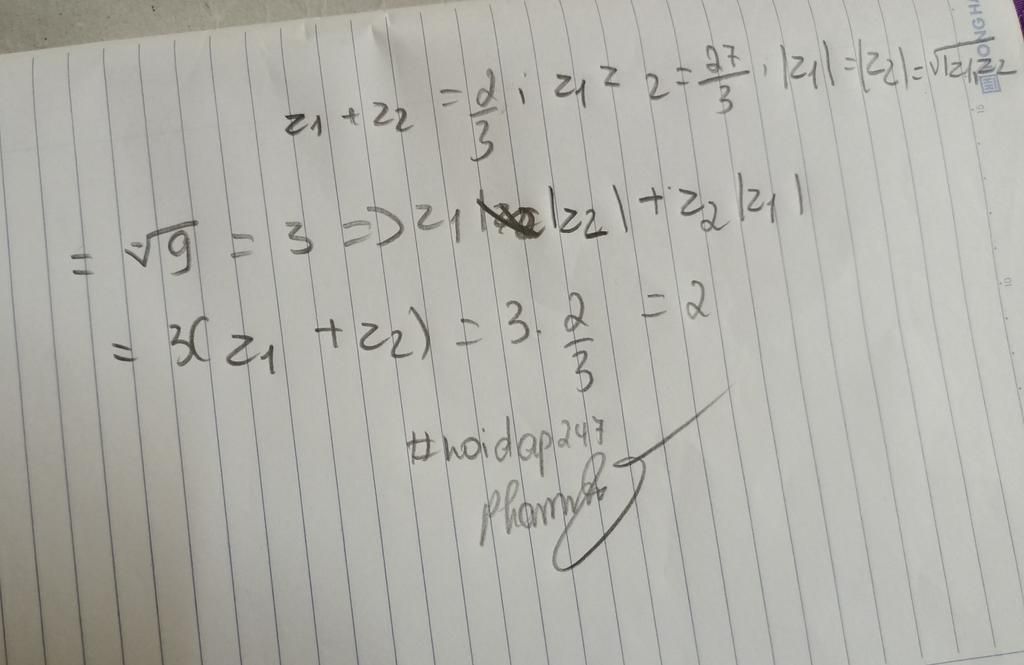 z1 + z2 = 2/3 ; z1 z 2 = 27/3 ; |z1| = |z2| = √|z1z2
= √9 = 3 => z1 |z2| + z2 |z1|
= 3( z1 + z2) = 3. 2/3 = 2
#hoidap247